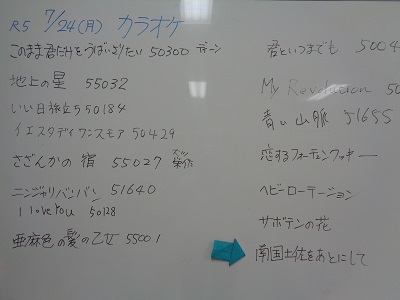 R5 7/24(月) カラオケ
このまま君だけをうばいさりたい 50300 ディーン
地上の星 55032
いい日旅立ち 50184
イエスタデイワンスモア 50429
さざんかの宿 55027 大川栄作
ニンジャリバンバン 51640
I love you 50128
亜麻色の髪の乙女 55001
君といつまでも 5004
My Revolution 50
青い山脈 51655
恋するフォーチュンクッキー
ヘビーローテーション
サボテンの花
南国土佐をあとにして